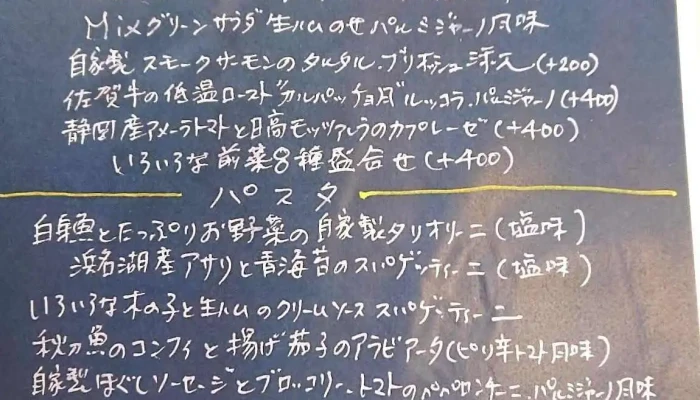 Mixグリーンサラダ 生ハムのせ パルミジャーノ風味
自家製 スモークサーモンのタルタル、ブリオッシュ添え (+200)
佐賀牛の低温ローストカルパッチョ風 ルッコラ、パルミジャーノ (+400)
静岡産アメーラトマトと日高モッツァレラのカプレーゼ (+400)
いろいろな前菜8種盛合せ (+400)
パスタ
白魚とたっぷりお野菜の自家製タリオリーニ (塩味)
浜名湖産アサリと青海苔のスパゲッティーニ (塩味)
いろいろな木の子と生ハムのクリームソース スパゲッティーニ
秋刀魚のコンフィと揚げ茄子のアラビアータ (ピリ辛トマト風味)
自家製ほぐしソーセージとブロッコリー、トマトのペペロンチーニ、パルミジャーノ風味